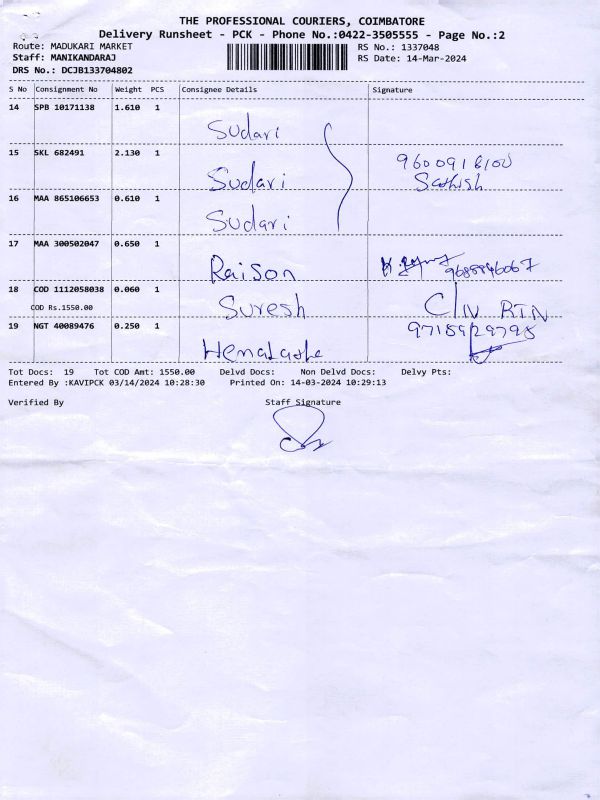 THE PROFESSIONAL COURIERS, COIMBATORE
Delivery Runsheet - PCK - Phone No.:0422-3505555 - Page No.:2
Route: MADUKARI MARKET RS No.: 1337048
Staff: MANIKANDARAJ RS Date: 14-Mar-2024
DRS No.: DCJB133704802
S No Consignment No Weight PCS Consignee Details Signature
14 SPB 10171138 1.610 1
Sudari
15 SKL 682491 2.130 1
9600918100
Sudari Sathish
16 MAA 865106653 0.610 1
Sudari
17 MAA 300502047 0.650 1
Raison 9688846067
18 COD 1112058038 0.060 1
COD Rs.1550.00 Suresh RTN
19 NGT 40089476 0.250 1
Tot Docs: 19 Tot COD Amt: 1550.00 Delvd Docs: Non Delvd Docs: Delvy Pts:
Entered By :KAVIPCK 03/14/2024 10:28:30 Printed On: 14-03-2024 10:29:13
Verified By Staff Signature